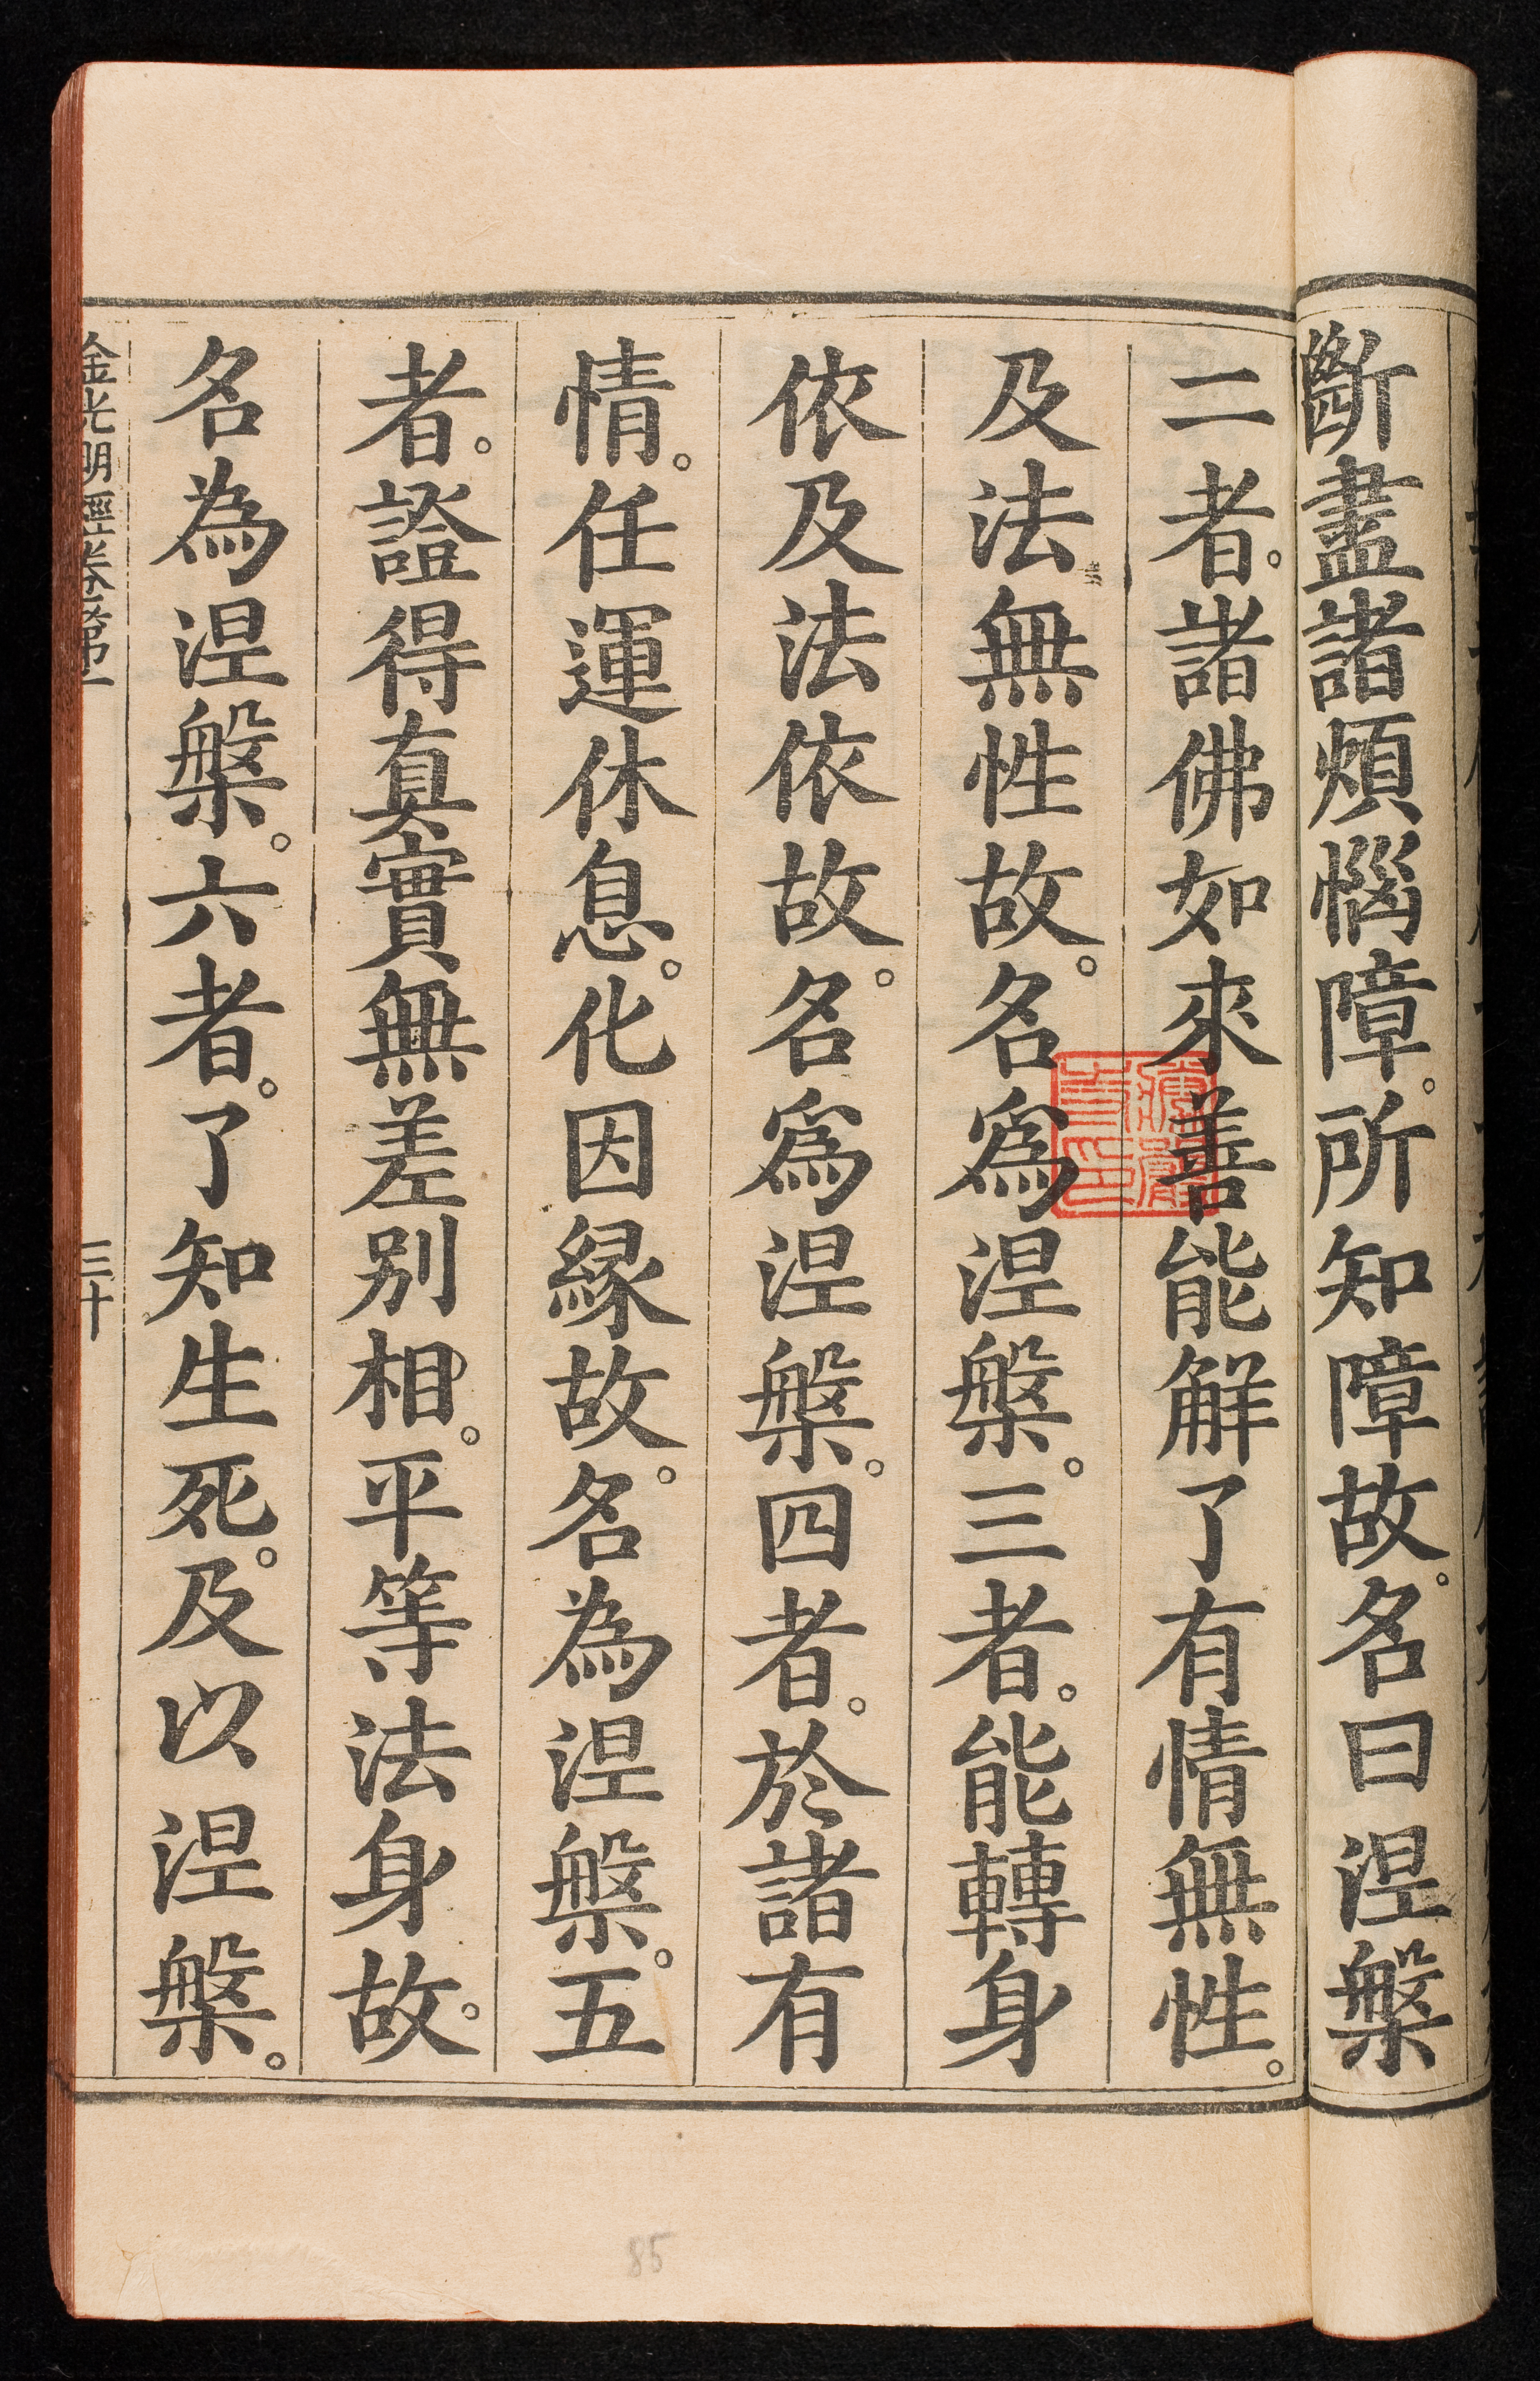 斷盡諸煩惱障。所知障故。名曰涅槃
二者。諸佛如來善能解了有情無性。
及法無性故。名爲涅槃。三者。能轉身
依及法依故。名爲涅槃。四者。於諸有
情。任運休息。化因縁故。名為涅槃。五
者。證得真實無差別相。平等法身故。
名為涅槃。六者。了知生死。及以涅槃。
金光明經卷第一
三十
85